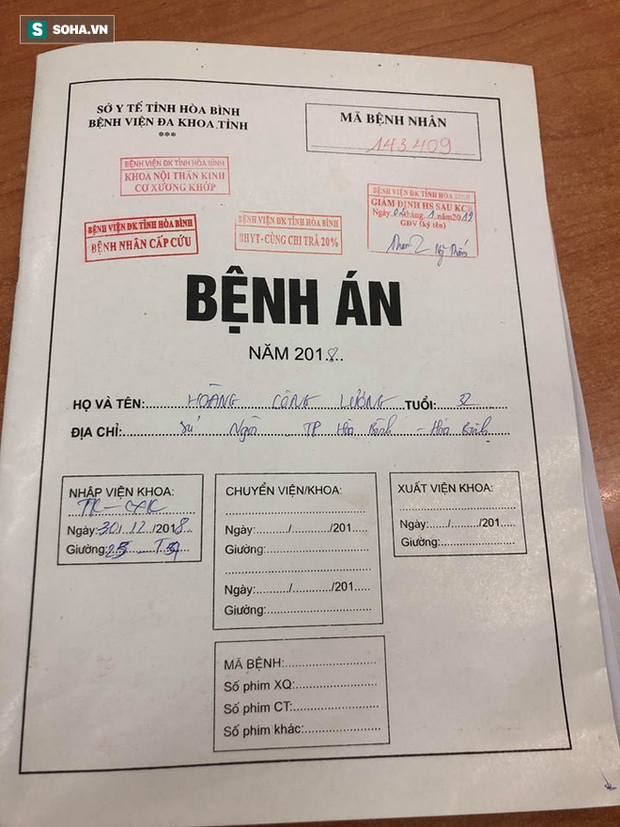 S SOHA.VN
SỞ Y TẾ TỈNH HÒA BÌNH
BỆNH VIỆN ĐA KHOA TỈNH
***
MÃ BỆNH NHÂN
143409
BỆNH VIỆN ĐK TỈNH HÒA BÌNH
KHOA NỘI THẦN KINH
CƠ XƯƠNG KHỚP
BỆNH VIỆN ĐK TỈNH HÒA BÌNH
GIÁM ĐỊNH HS SAU KCB
Ngày 02 tháng 1 năm 2019
GĐV (ký tên)
BỆNH VIỆN ĐK TỈNH HÒA BÌNH
BỆNH NHÂN CẤP CỨU
BỆNH VIỆN ĐK TỈNH HÒA BÌNH
BHYT-CÙNG CHI TRẢ 20%
BỆNH ÁN
NĂM 2018
HỌ VÀ TÊN: HOÀNG CÔNG LƯƠNG TUỔI: 32
ĐỊA CHỈ: Sủ Ngòi TP Hòa Bình - Hòa Bình
NHẬP VIỆN KHOA:
TK-CXK
Ngày: 30/12/2018
Giường:
CHUYỂN VIỆN/KHOA:
Ngày:....../....../201.....
Giường:
Ngày:....../....../201.....
Giường:
XUẤT VIỆN KHOA:
Ngày:....../....../201.....
Giường:
MÃ BỆNH:
Số phim XQ:
Số phim CT:
Số phim khác: